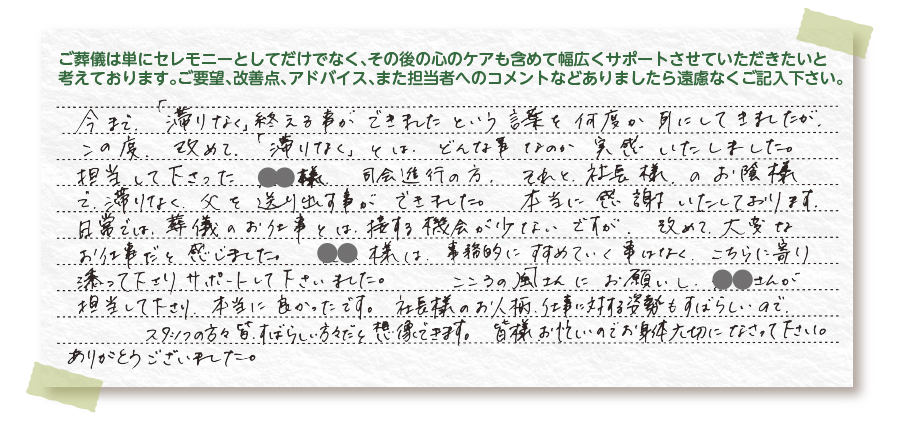 ご葬儀は単にセレモニーとしてだけでなく、その後の心のケアも含めて幅広くサポートさせていただきたいと
考えております。ご要望、改善点、アドバイス、また担当者へのコメントなどありましたら遠慮なくご記入下さい。
今まで、「滞りなく」終える事ができましたという言葉を何度か耳にしてきましたが、
この度、改めて、「滞りなく」とは、どんな事なのか実感いたしました。
担当して下さった ●●様、司会進行の方、それと、社長様、のお陰様
で、滞りなく、父を送り出す事ができました。本当に感謝いたしております。
日常では、葬儀のお仕事とは、接する機会が少ないですが、改めて、大変な
お仕事だと感じました。●●様は、事務的にすすめていく事はなく、こちらに寄り
添って下さりサポートして下さいました。こころの風さんにお願いし、●●さんが
担当して下さり、本当に良かったです。社長様のお人柄、仕事に対する姿勢もすばらしいので、
スタッフの方々皆、すばらしい方々だと想像できます。皆様お忙しいのでお身体大切になさって下さい。
ありがとうございました。